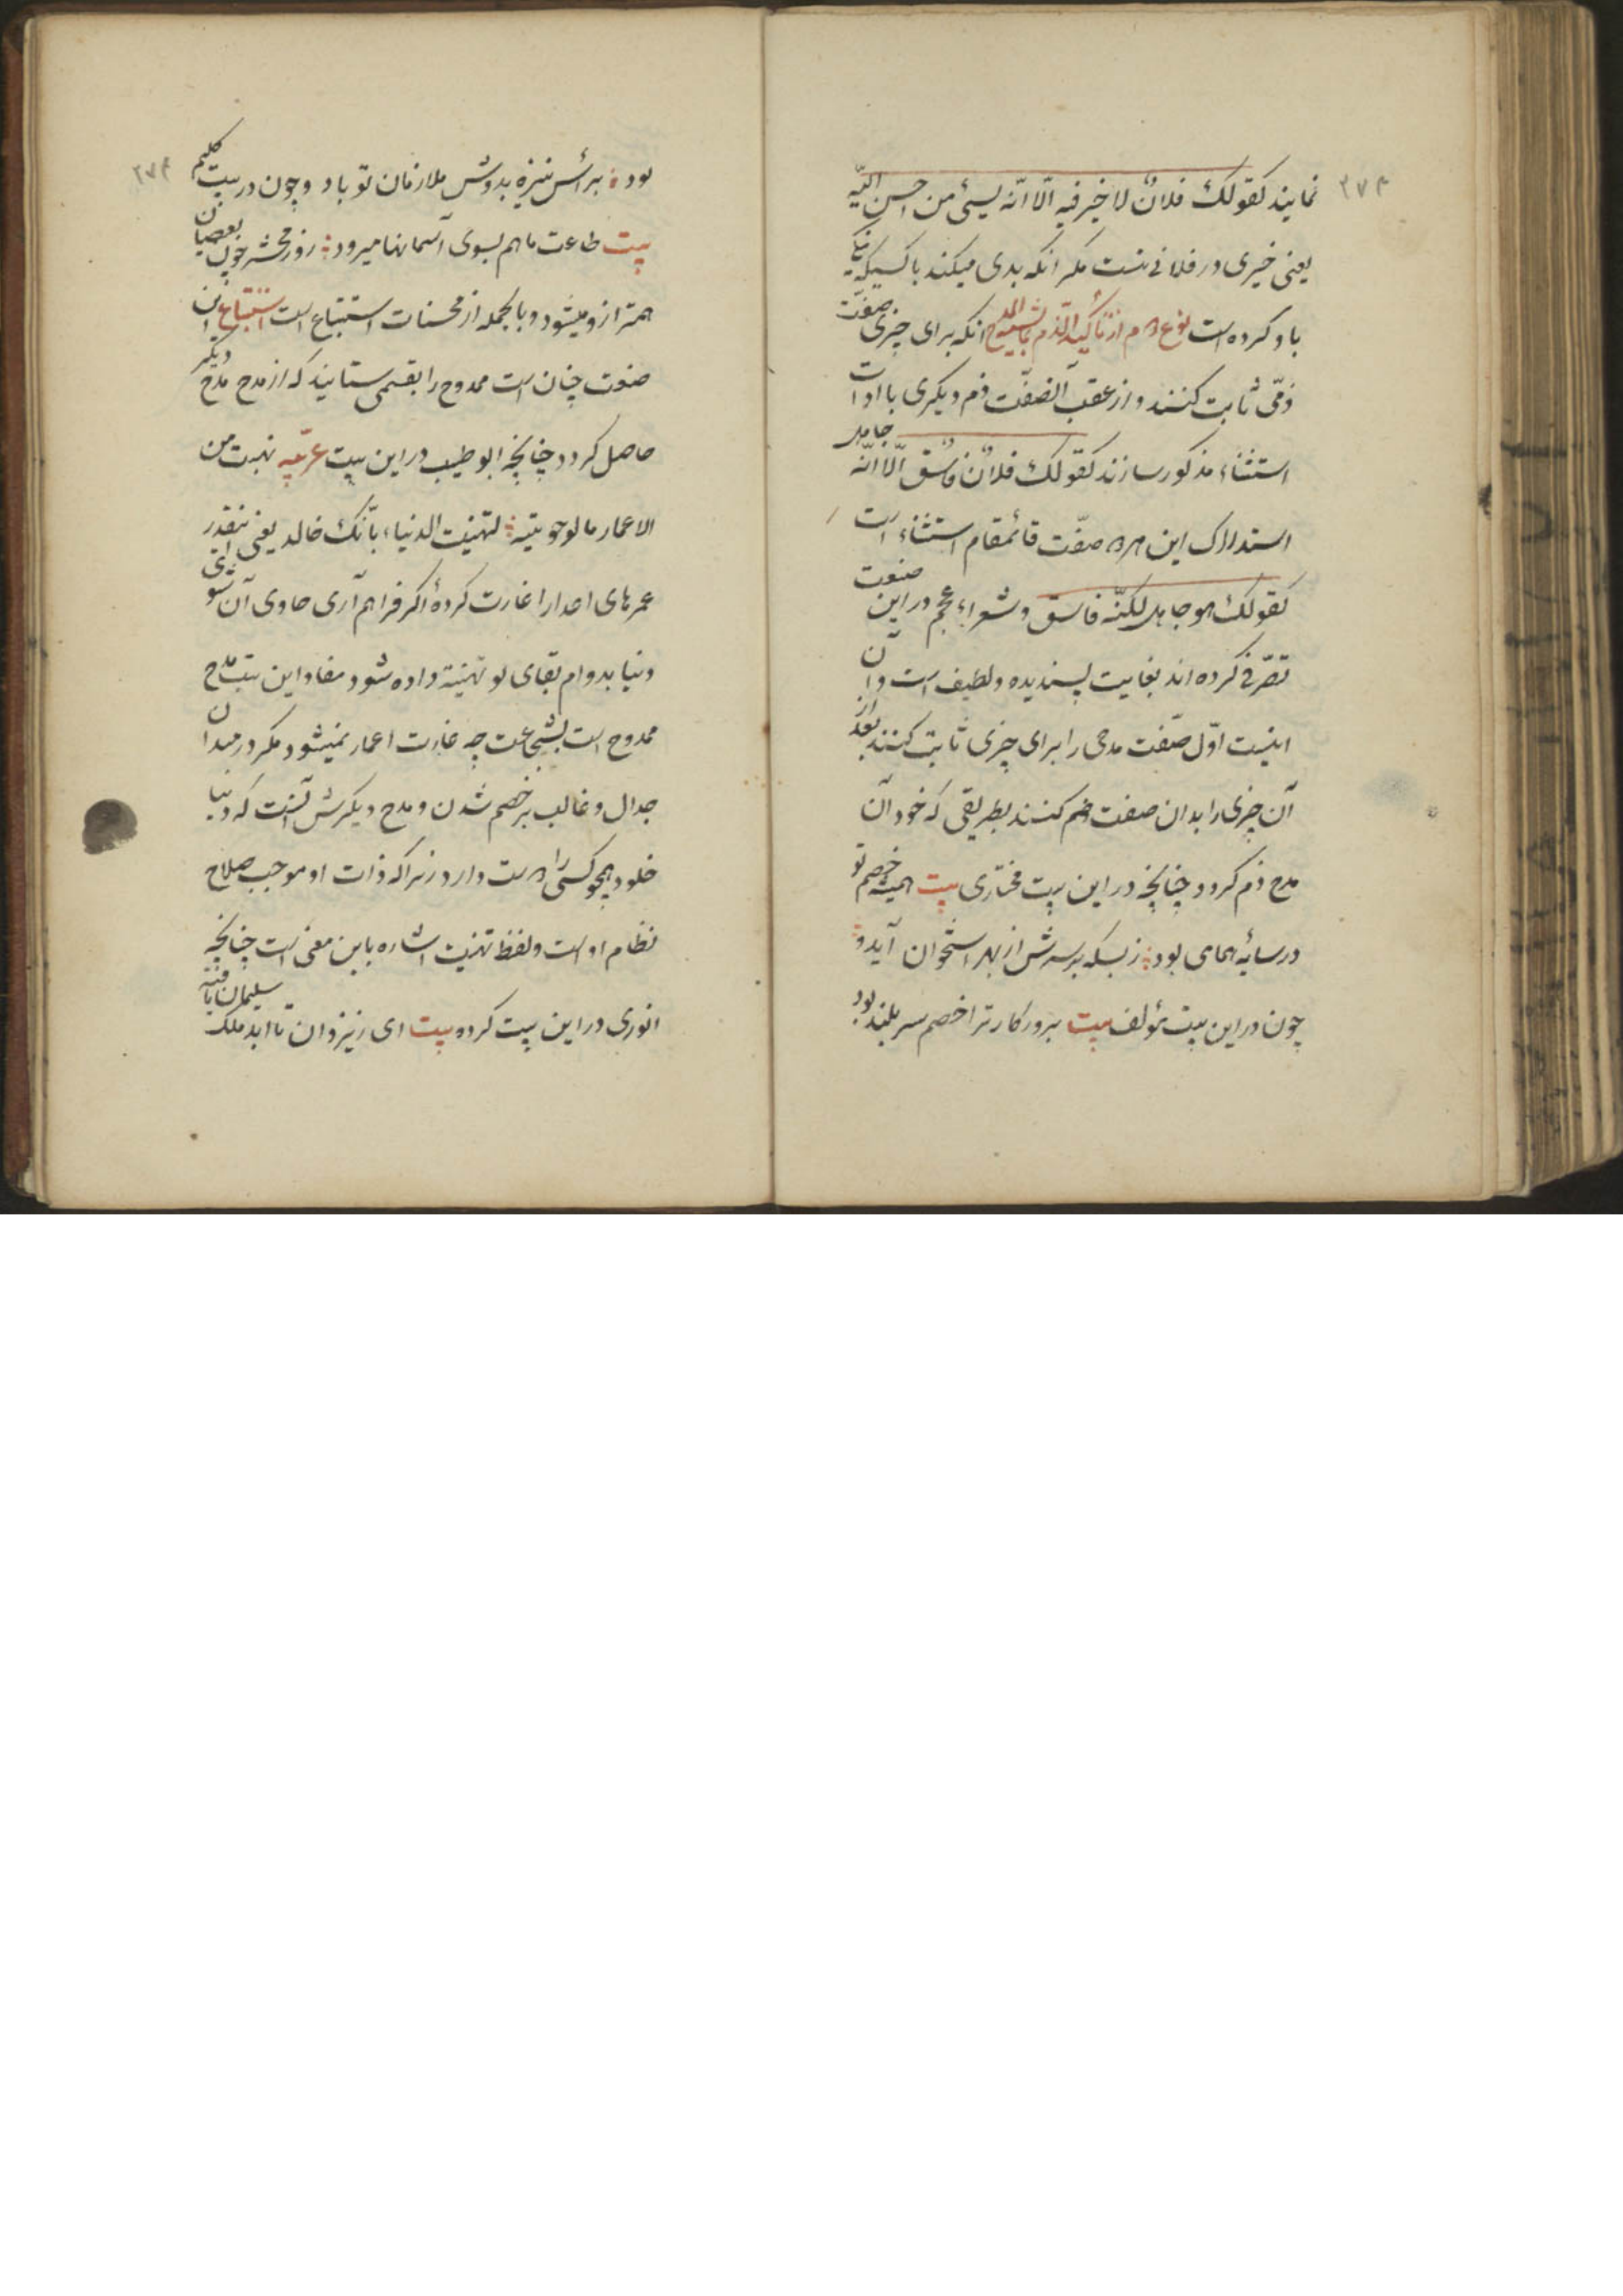 ۲۷۴
نمایند کقولک فلانٌ لا خیر فیه الّا انّه یسیٔ من احسن الیّه
یعنی خیری در فلانی نیست مکر انکه بدی میکند باکسیکه نیکی
باو کرده است نوع دوم از تأکید الذم بمایشبه المدح انکه برای چیزی صفت
ذمّی ثابت کنند و از عقب آنصفّت ذم دیکری با ادات
استثناء مذکور سازند کقولک فلانٌ فاسقٌ الّا انّه جاهل
استدراک این دو صفّت قائمقام استثناء است
کقولک هو جاهل لکنّه فاسق و شعراء عجم در این صنعت
تصرّفی کرده اند بغایت پسندیده و لطیف است و آن
اینست اوّل صفّت مدحی را برای چیزی ثابت کنند بعد از
آن چیزی را بدان صفت ذم کنند بطریقی که خود آن
مدح ذم کردد چنانچه در این بیت مختاری بیت همیشه خصم تو
در سایٔه همای بود ؛ زبسکه بر سرش از بهر استخوان آید و
چون در این بیت مؤلف بیت بروزکار ترا خصم سر بلند بود
۲۷۴
بود ؛ برأس نیزه بدوش ملازمان تو باد و چون در بیت کلیم
بیت طاعت ما هم بسوی آسمانها میرود ؛ روز محشر چون بعصیان
همترازو میشود و بالجمله از محسنات استتباع است استتباع این
صنعت چنان است ممدوح را بقسمی ستایند که از مدح مدح دیکر
حاصل کردد چنانچه ابو طیب در این بیت عربّیه نهبت من
الاعمار ما لو حویته ؛ لتهنیت الدنیاء بانّک خالد یعنی اینقدر
عمرهای اعدا را غارت کردهٔ اکر فراهم آری حاوی آن شوی
دنیا بدوام بقای تو تهنیة داده شود مفاد این بیت مدح
ممدوح است بشجاعت چه غارت اعمار نمیشود مکر در میدان
جدال و غالب بر خصم شدن و مدح دیکرش آنست که دنیا
خلود همچو کسی را دوست دارد زیرا که ذات او موجب صلاح
نظام اوست و لفظ تهنیت اشاره باین معنی است چنانچه
انوری در این بیت کرده بیت ای زیزدان تا ابد ملک سلیمان یافته